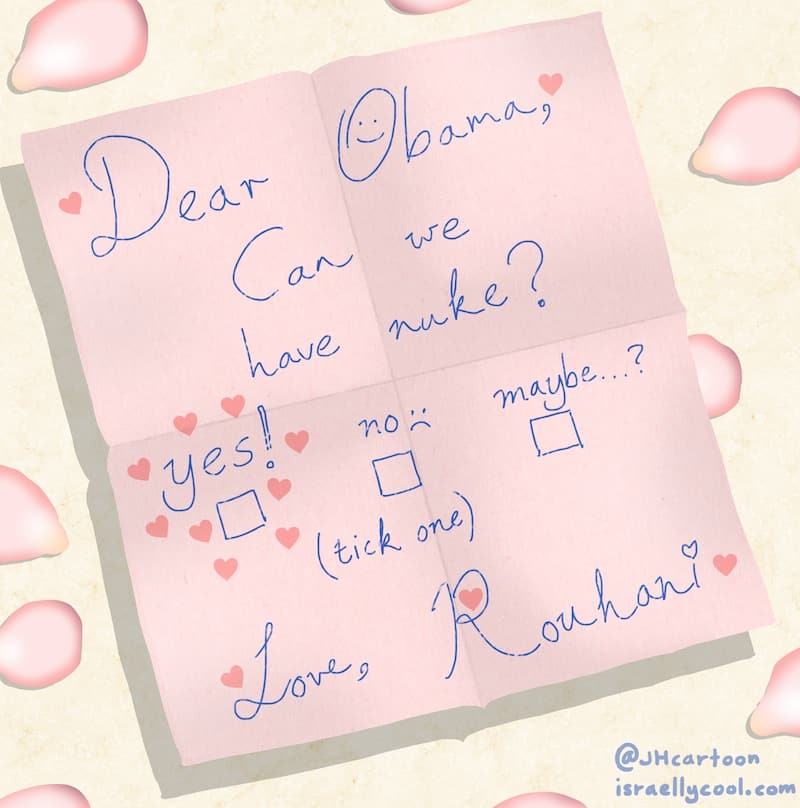 Dear Obama,
Can we
have nuke?
yes! no :( maybe...?
(tick one)
Love, Rouhani
@JHcartoon
israellycool.com